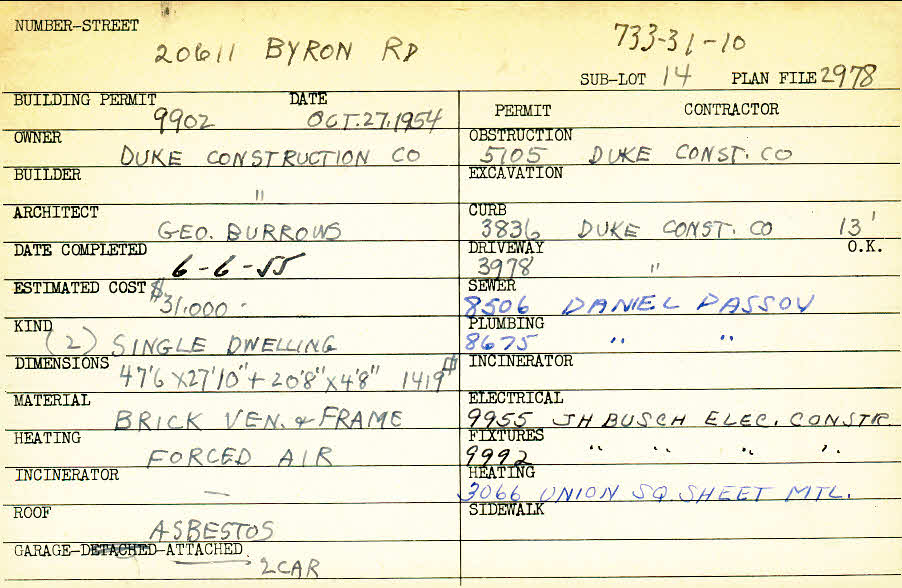 NUMBER-STREET
20611 BYRON RD
733-31-10
SUB-LOT 14 PLAN FILE 2978
BUILDING PERMIT DATE
9902 OCT.27.1954
OWNER
DUKE CONSTRUCTION CO
BUILDER
"
ARCHITECT
GEO. BURROWS
DATE COMPLETED
6-6-55
ESTIMATED COST $
31,000-
KIND
(2) SINGLE DWELLING
DIMENSIONS
47'6 X 27'10" + 20'8" X 4'8" 1419
MATERIAL
BRICK VEN. & FRAME
HEATING
FORCED AIR
INCINERATOR
—
ROOF
ASBESTOS
GARAGE-DETACHED-ATTACHED
2 CAR
PERMIT CONTRACTOR
OBSTRUCTION
5705 DUKE CONST. CO
EXCAVATION
CURB
3836 DUKE CONST. CO 13'
DRIVEWAY O.K.
3978 "
SEWER
8506 DANIEL PASSOV
PLUMBING
8675 " "
INCINERATOR
ELECTRICAL
9955 JH BUSCH ELEC. CONSTR.
FIXTURES
9992 " " " "
HEATING
3066 UNION SQ. SHEET MTL.
SIDEWALK